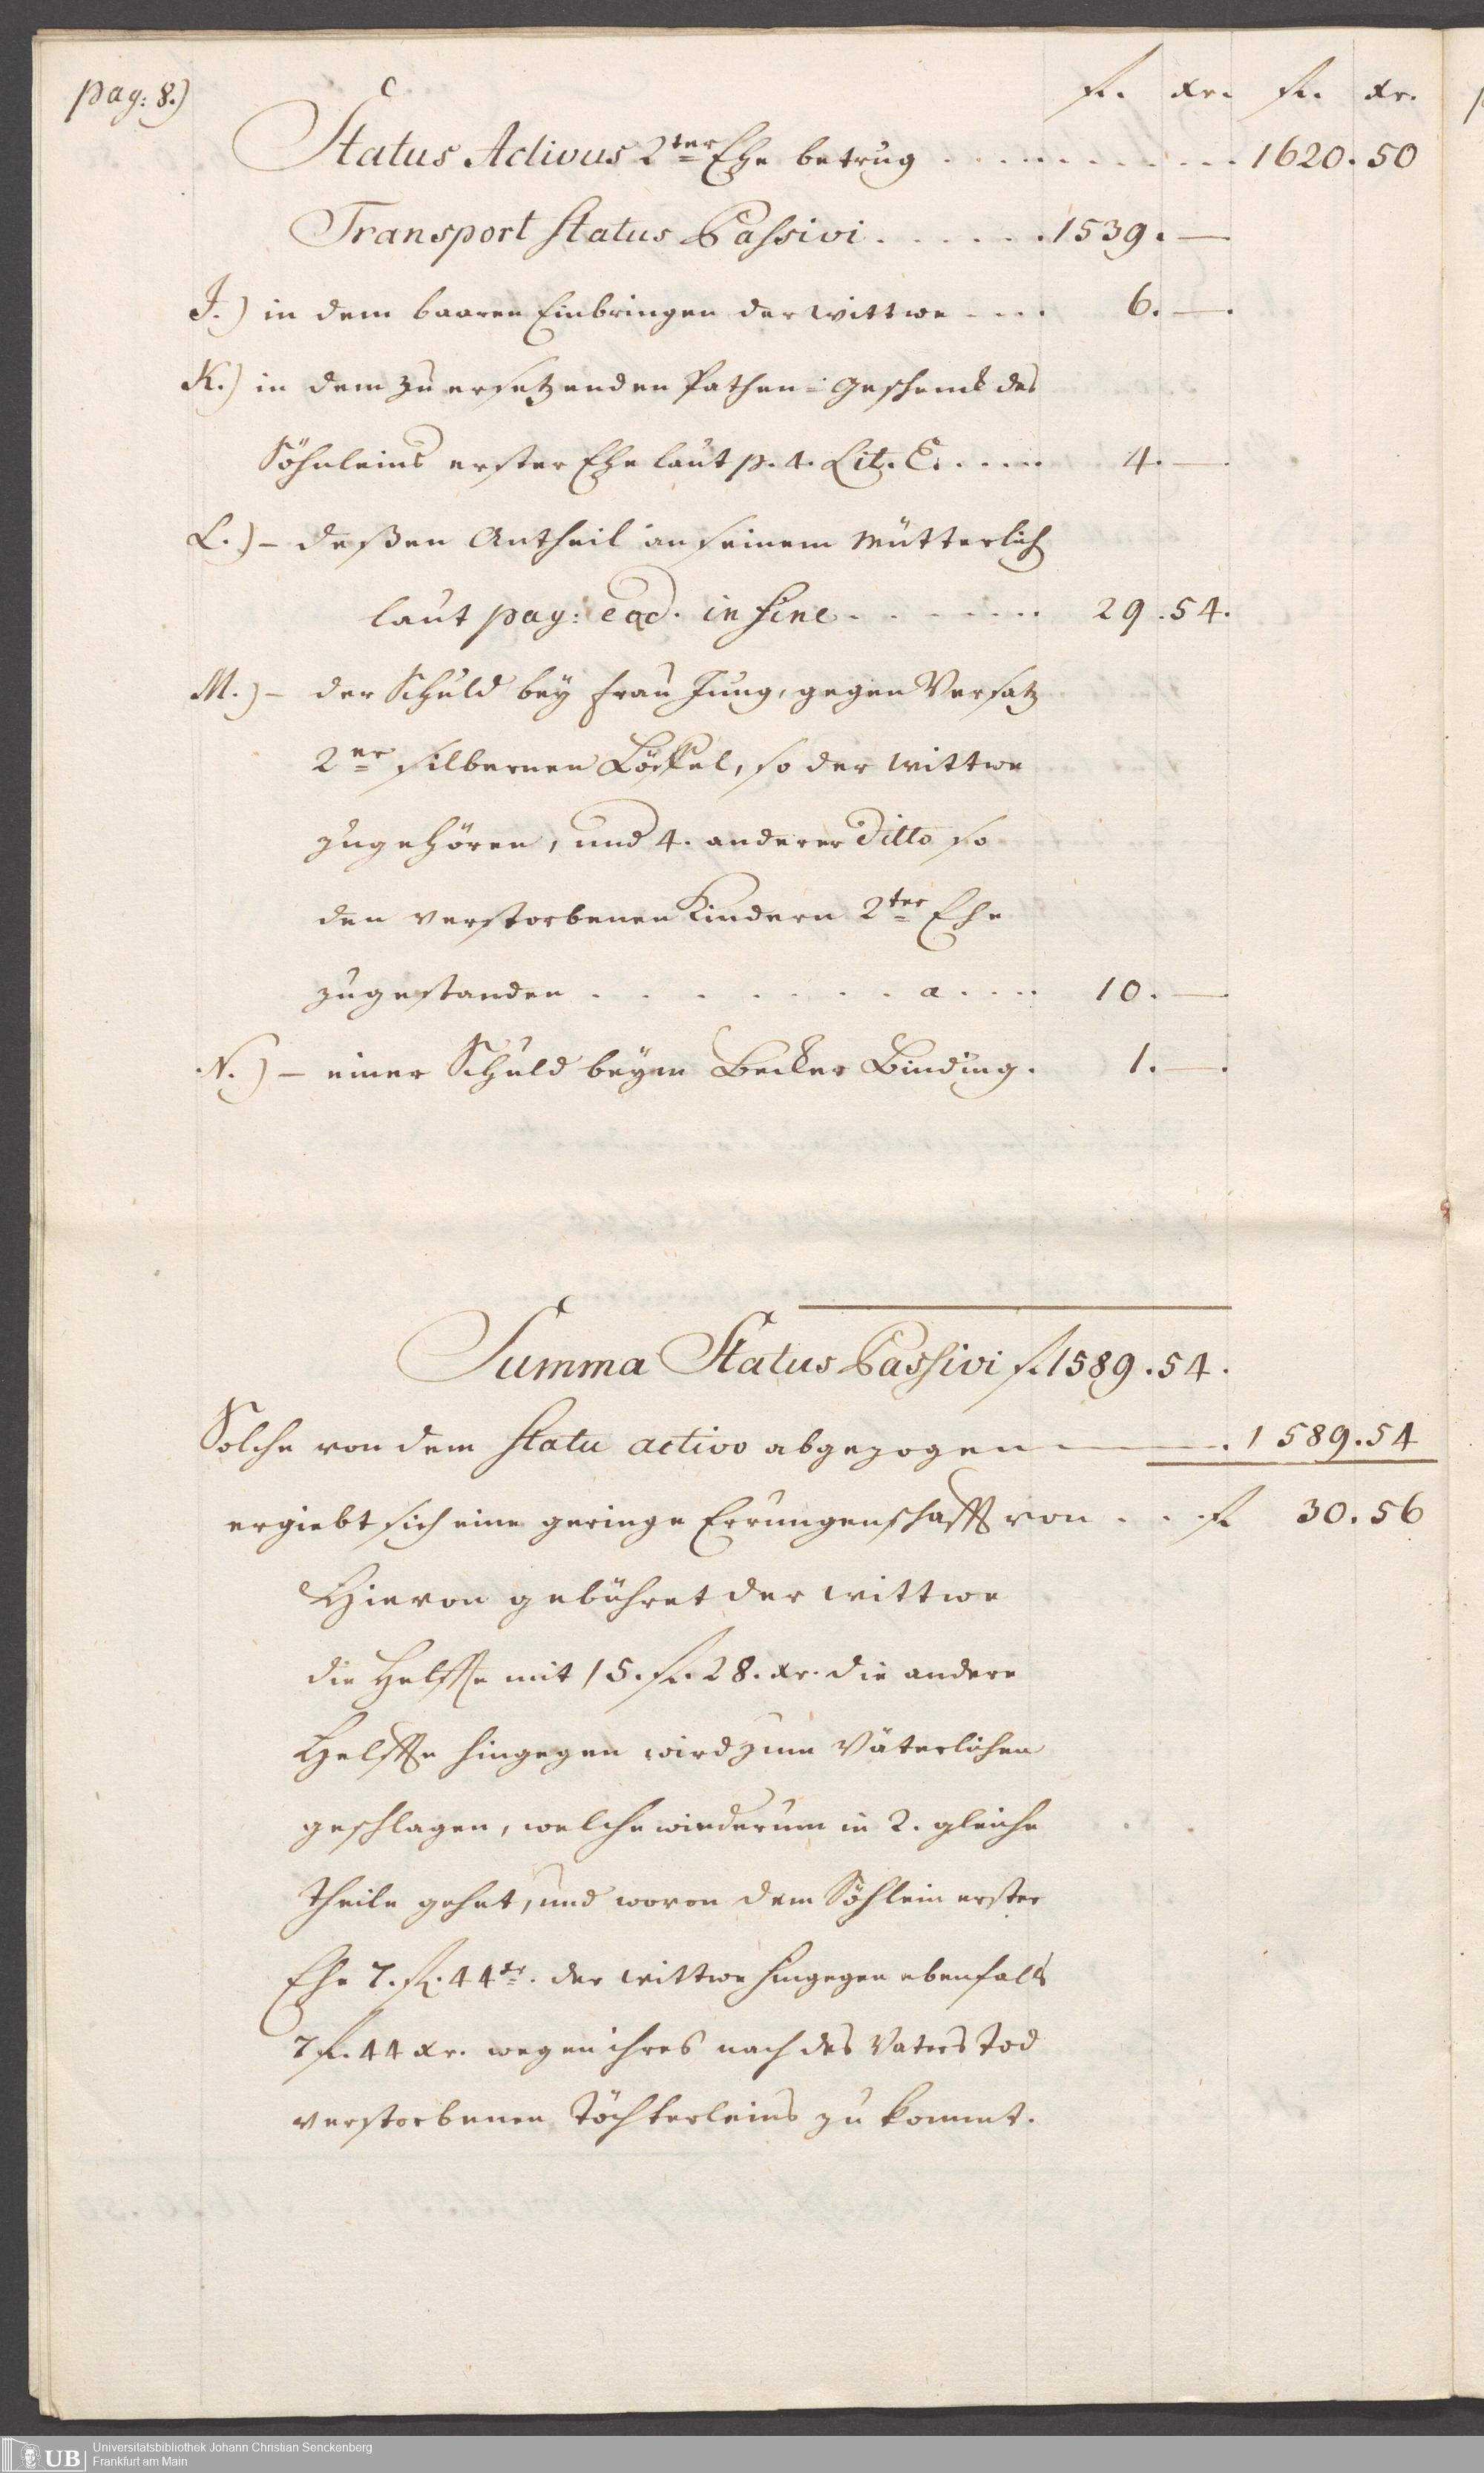 pag: 8.)
fl. xr. fl. xr.
Status Activus 2ter Ehe betrug . . . . . . . . . . 1620. 50
Transport Status Passivi . . . . . . 1539. —
J.) in dem baaren Einbringen der Wittwe . . . . 6. —
K.) in dem zu ersetzenden Pathen-Geschenck des
Söhnleins erster Ehe laut p. 4. Lit. E. . . . . 4. —
L.) — deßen Antheil an seinem Mütterlich
laut pag: ead. in fine . . . . . . . 29. 54.
M.) — der Schuld bey Frau Jung, gegen Versatz
2er silbernen Löffel, so der Wittwe
zugehören, und 4. anderer Ditto so
den verstorbenen Kindern 2ter Ehe
zugestanden . . . . . . . a . . . . 10. —
N.) — einer Schuld beym Becker Binding. 1. —
Summa Status Passivi fl. 1589. 54.
Solche von dem Statu activo abgezogen — . 1589. 54
ergiebt sich eine geringe Errungenschafft von . . . fl. 30. 56
Hievon gebühret der Wittwe
die Helffte mit 15. fl. 28. xr. die andere
Helffte hingegen wird zum Väterlichen
geschlagen, welche wiederum in 2. gleiche
Theile gehet, und wovon dem Söhlein erster
Ehe 7. fl. 44 xr. der Wittwe hingegen ebenfalls
7 fl. 44 xr. wegen ihres nach des Vaters Tod
verstorbenen Töchterleins zu kommt.
UB
Universitätsbibliothek Johann Christian Senckenberg
Frankfurt am Main